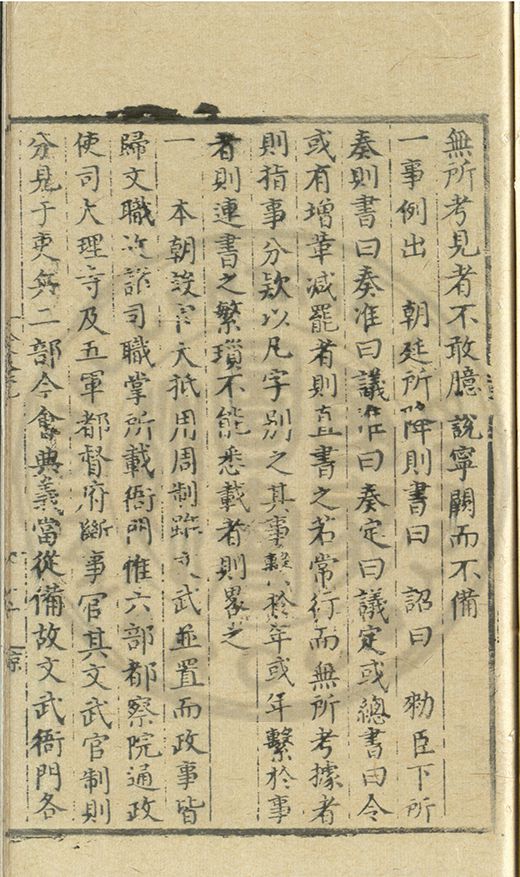 無所考見者不敢臆說寧闕而不備
一事例出　朝廷所降則書曰　詔曰　勑臣下所
奏則書曰奏准曰議准曰奏定曰議定或總書曰令
或有增革減罷者則直書之若常行而無所考據者
則指事分欵以凡字別之其事繫於年或年繫於事
者則連書之繁瑣不能悉載者則畧之
一　本朝設官大抵用周制雖文武並置而政事皆
歸文職次諸司職掌所載衙門惟六部都察院通政
使司大理寺及五軍都督府斷事官其文武官制則
分見于吏兵二部今會典義當從備故文武衙門各